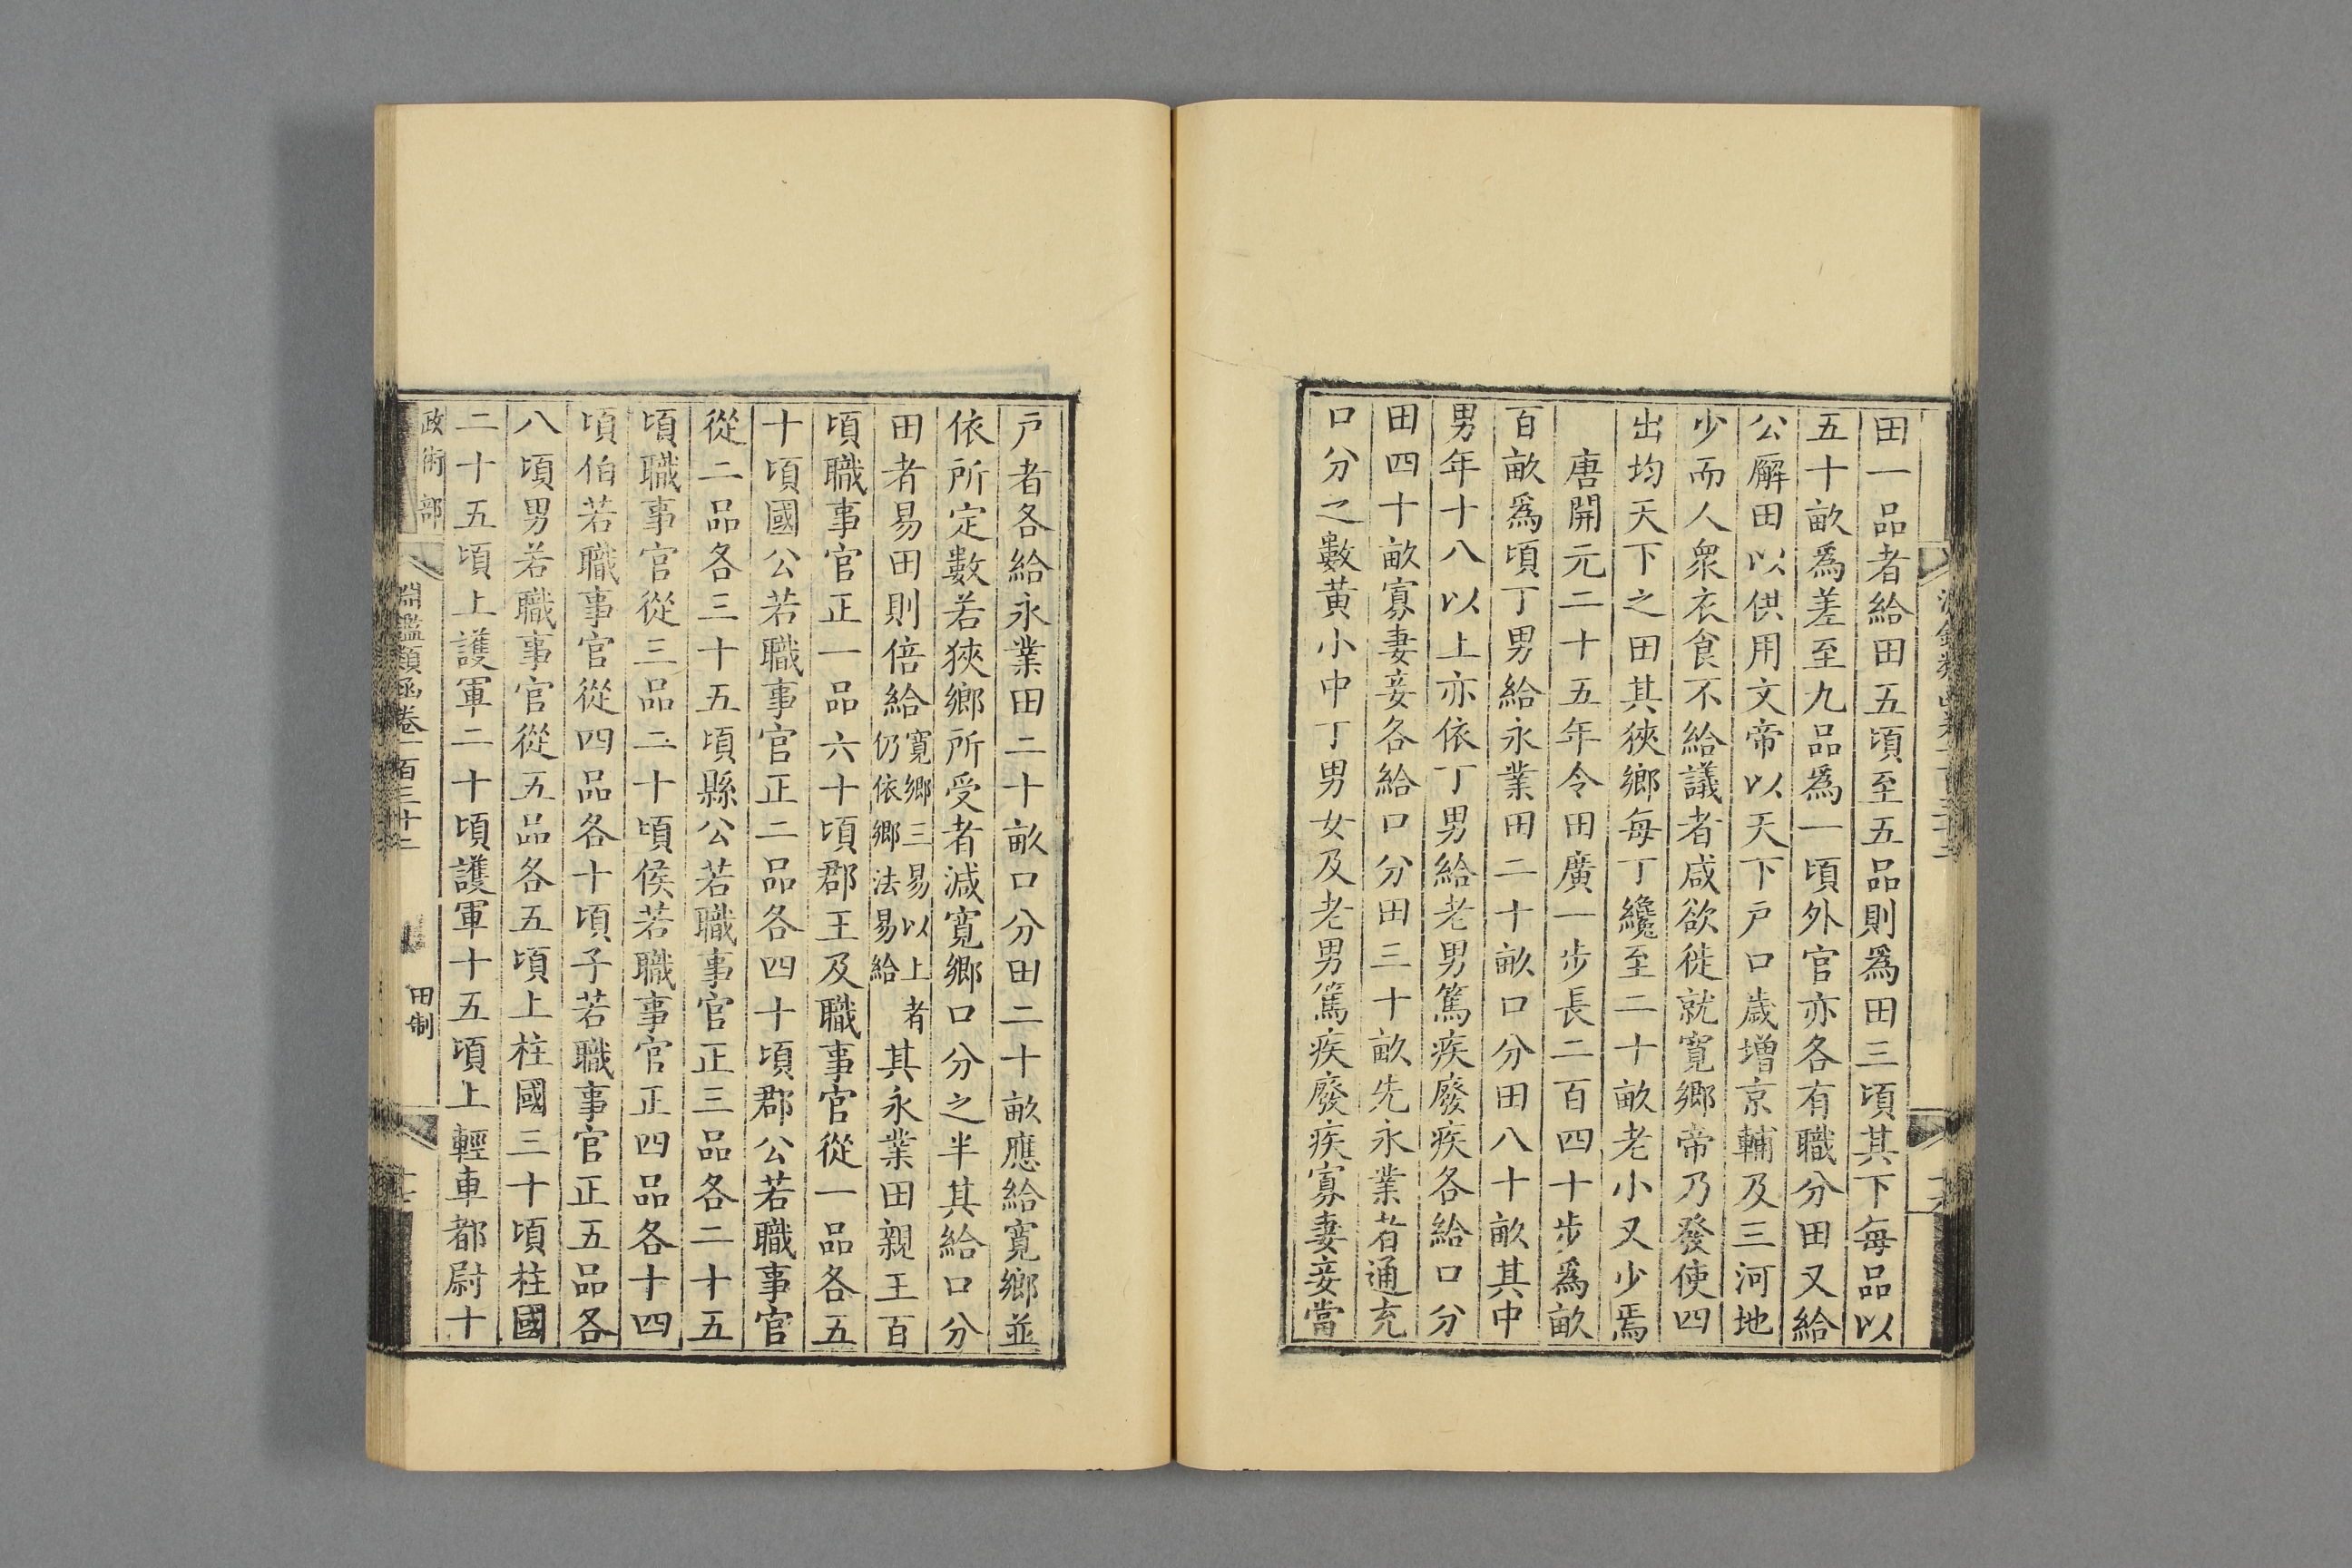 田一品者給田五頃至五品則爲田三頃其下每品以
五十畝爲差至九品爲一頃外官亦各有職分田又給
公廨田以供用文帝以天下戶口歲增京輔及三河地
少而人衆衣食不給議者咸欲徙就寬鄉帝乃發使四
出均天下之田其狹鄉每丁纔至二十畝老小又少焉
唐開元二十五年令田廣一步長二百四十步爲畝
百畝爲頃丁男給永業田二十畝口分田八十畝其中
男年十八以上亦依丁男給老男篤疾廢疾各給口分
田四十畝寡妻妾各給口分田三十畝先永業者通充
口分之數黃小中丁男女及老男篤疾廢疾寡妻妾當
戶者各給永業田二十畝口分田二十畝應給寬鄉並
依所定數若狹鄉所受者減寬鄉口分之半其給口分
田者易田則倍給寬鄉三易以上者仍依鄉法易給其永業田親王百
頃職事官正一品六十頃郡王及職事官從一品各五
十頃國公若職事官正二品各四十頃郡公若職事官
從二品各三十五頃縣公若職事官正三品各二十五
頃職事官從三品二十頃侯若職事官正四品各十四
頃伯若職事官從四品各十頃子若職事官正五品各
八頃男若職事官從五品各五頃上柱國三十頃柱國
二十五頃上護軍二十頃護軍十五頃上輕車都尉十
政術部
淵鑑類函卷一百三十二
田制